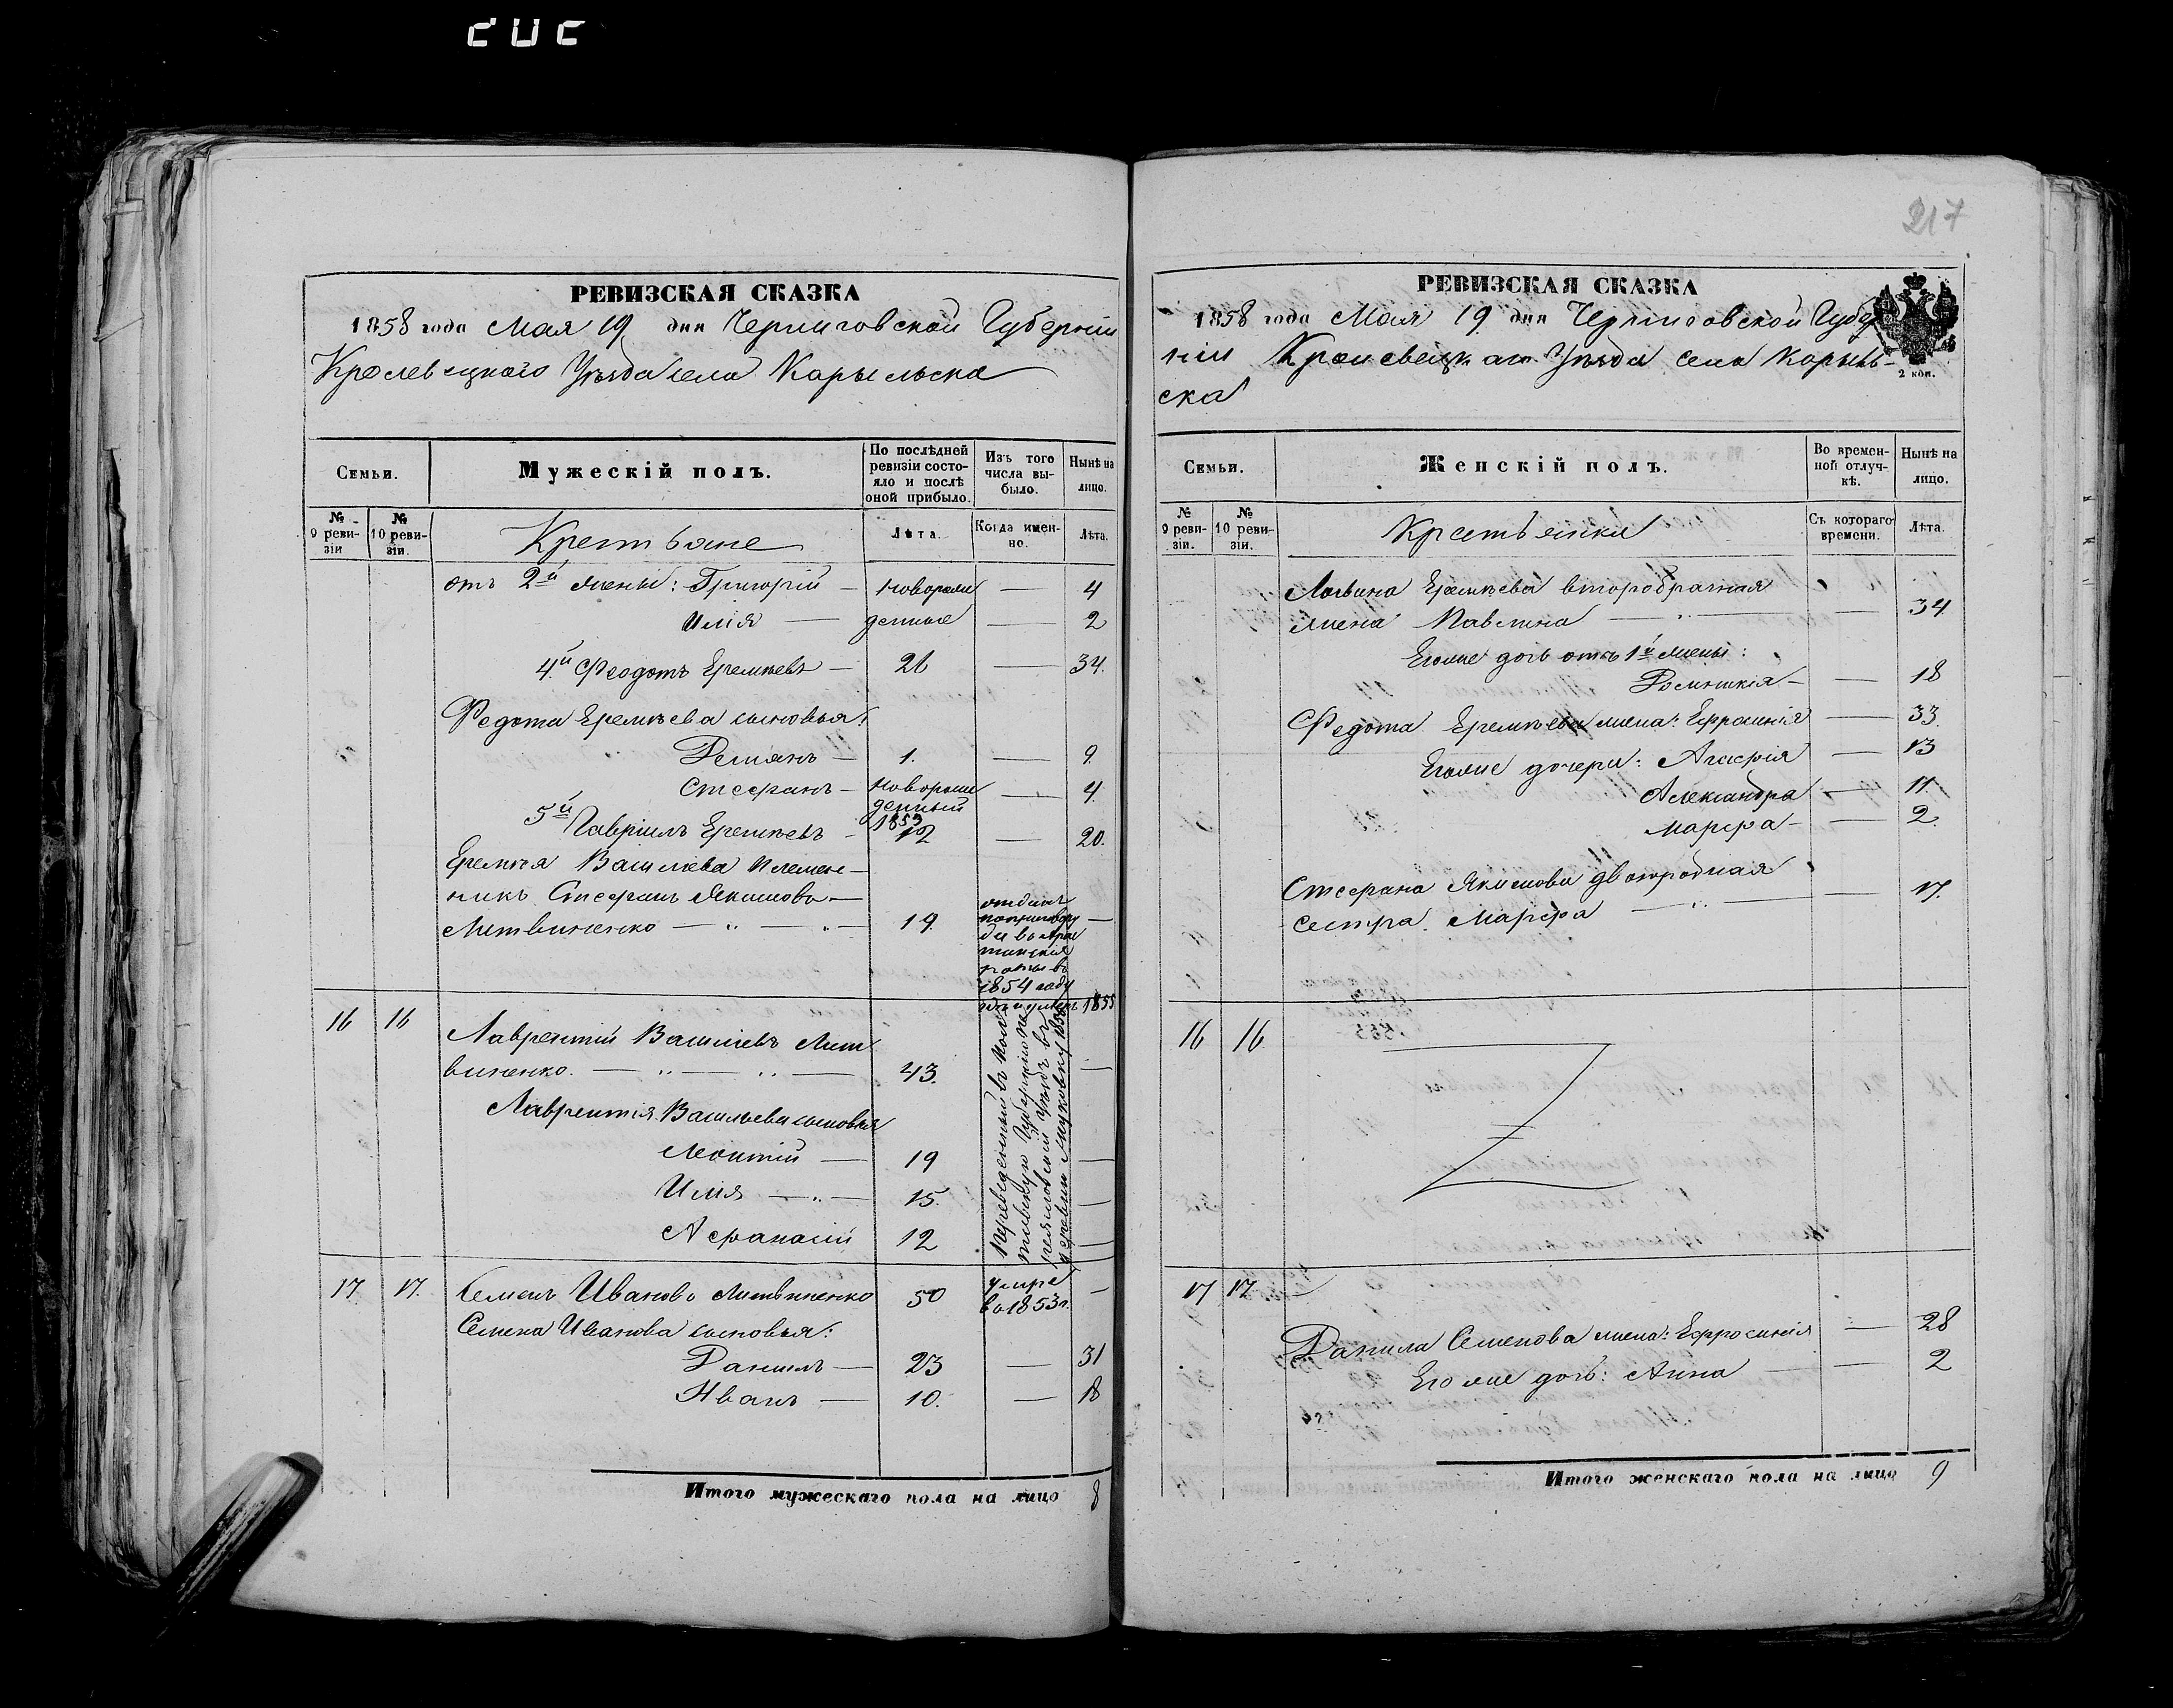 217
РЕВИЗСКАЯ СКАЗКА
1858 года Мая 19 дня Черниговской Губерніи
Кролевецкаго Уѣзда села Карыльска
Семьи.
Мужескій полъ.
По послѣдней ревизіи состояло и послѣ оной прибыло.
Изъ того числа выбыло.
Нынѣ на лицо.
№ 9 ревизіи
№ 10 ревизіи.
Крестьяне
Лѣта.
Когда именно.
Лѣта.
отъ 2й жены: Григорій — новорож — 4
Илія — денные — 2
4й Феодотъ Еремѣевъ — 26 — 34.
Федота Еремѣева сыновья:
Демянъ — 1. — 9.
Стефанъ — новорож — 4.
денный
1853
5й Гавріилъ Еремѣевъ — 12 — 20.
Еремѣя Васильева племен-
никъ Стефанъ Якимовъ —
Литвиненко — " — " — 19.
отданъ
въ
роты въ
1854 году
гдѣ и умеръ 1855
16 16
Лаврентій Васильевъ Лит
виненко. — " — " — 43. —
Лаврентія Васильева сыновья
Леонтій — 19 —
Илія — " — 15. —
Афанасій 12 —
переведенный въ Пол
тавскую Губернію Пе
реяславскій Уѣздъ въ
деревню 185
17. 17. Семенъ Ивановъ Литвиненко 50 умре —
во 1853 г.
Семена Иванова сыновья:
Данилъ — 23 — 31
Иванъ — 10. — 18
Итого мужескаго пола на лицо 8
РЕВИЗСКАЯ СКАЗКА
1858 года Мая 19 дня Черниговской Губер
ніи Кролевецкаго Уѣзда села Карыль-
ска
2 коп.
Семьи.
Женскій полъ.
Во временной отлучкѣ.
Нынѣ на лицо.
№ 9 ревизіи.
№ 10 ревизіи.
Крестьянки
Съ котораго времени.
Лѣта.
Еремѣева второбрачная
жена Павлина — " — 34.
Егоже дочь отъ 1й жены:
— 18
Федота Еремѣева жена: Ефросинія — 33.
Егоже дочери: Агафія — 13
Александра — 11.
Марфа — 2.
Стефана Якимова двоюродная
сестра Марфа — " — 17.
16 16
17 17
Данила Семенова жена: Ефросинія — 28
Его же дочь: Анна — 2
Итого женскаго пола на лицо 9